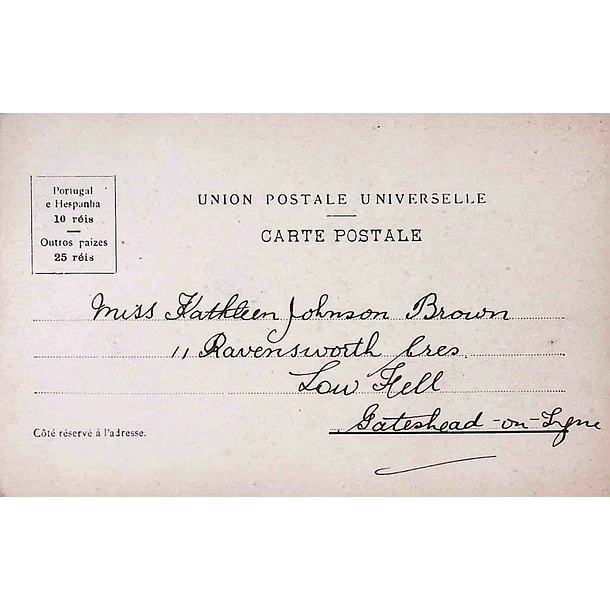 Portugal
e Hespanha
10 réis
Outros paizes
25 réis
UNION POSTALE UNIVERSELLE
CARTE POSTALE
Miss Kathleen Johnson Brown
11 Ravensworth Cres.
Low Fell
Gateshead-on-Tyne
Côté réservé à l'adresse.